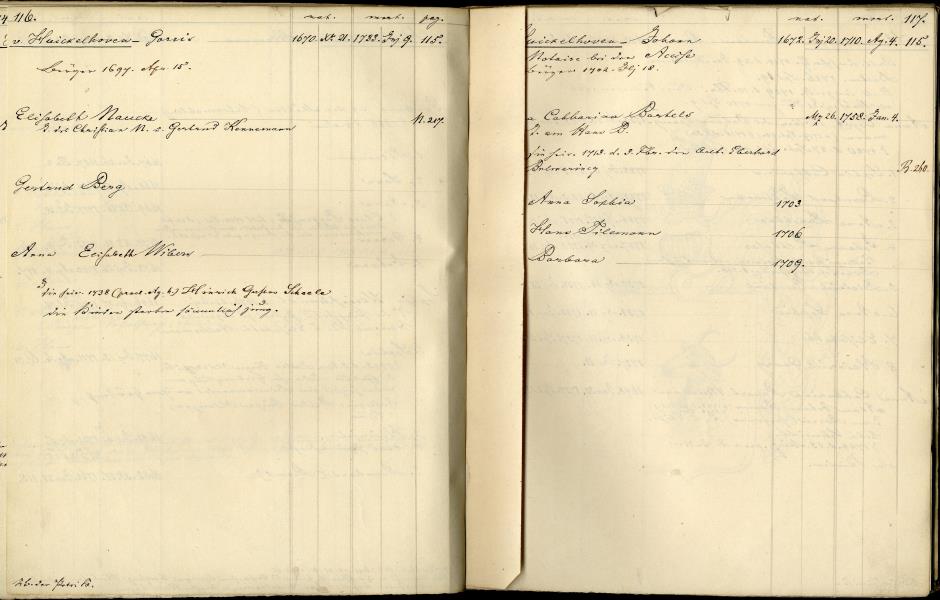 116.
nat. mort. pag.
v. Huickelhoven - Gorris 1670. Xb. 21. 1733. Jvj 9. 115.
bürger 1697. Apr. 15.
Elisabeth Naucke N. 217.
T. des Christian N. u. Gertrud Kennemann
Gertrud Berg
Anna Elisabeth Wibers
sie heir. 1738 (procl. Ag. 6.) Hinrich Gaspar Scheele
die Kinder starben sämmtlich jung.
Petri B.
nat. mort. 117.
Huickelhoven - Johann 1672. Jvj 20. 1710. Ag. 4. 115.
Notaire bei der Accise
bürger 1702. Jlj 18.
Catharina Bartels My 26. 1753. Jan. 4.
Hans B.
sie heir. 1713. d. 3. Fbr. den Eberhard
Bulmerincq B. 260.
Anna Sophia 1703
Hans Tilemann 1706
Barbara 1709.